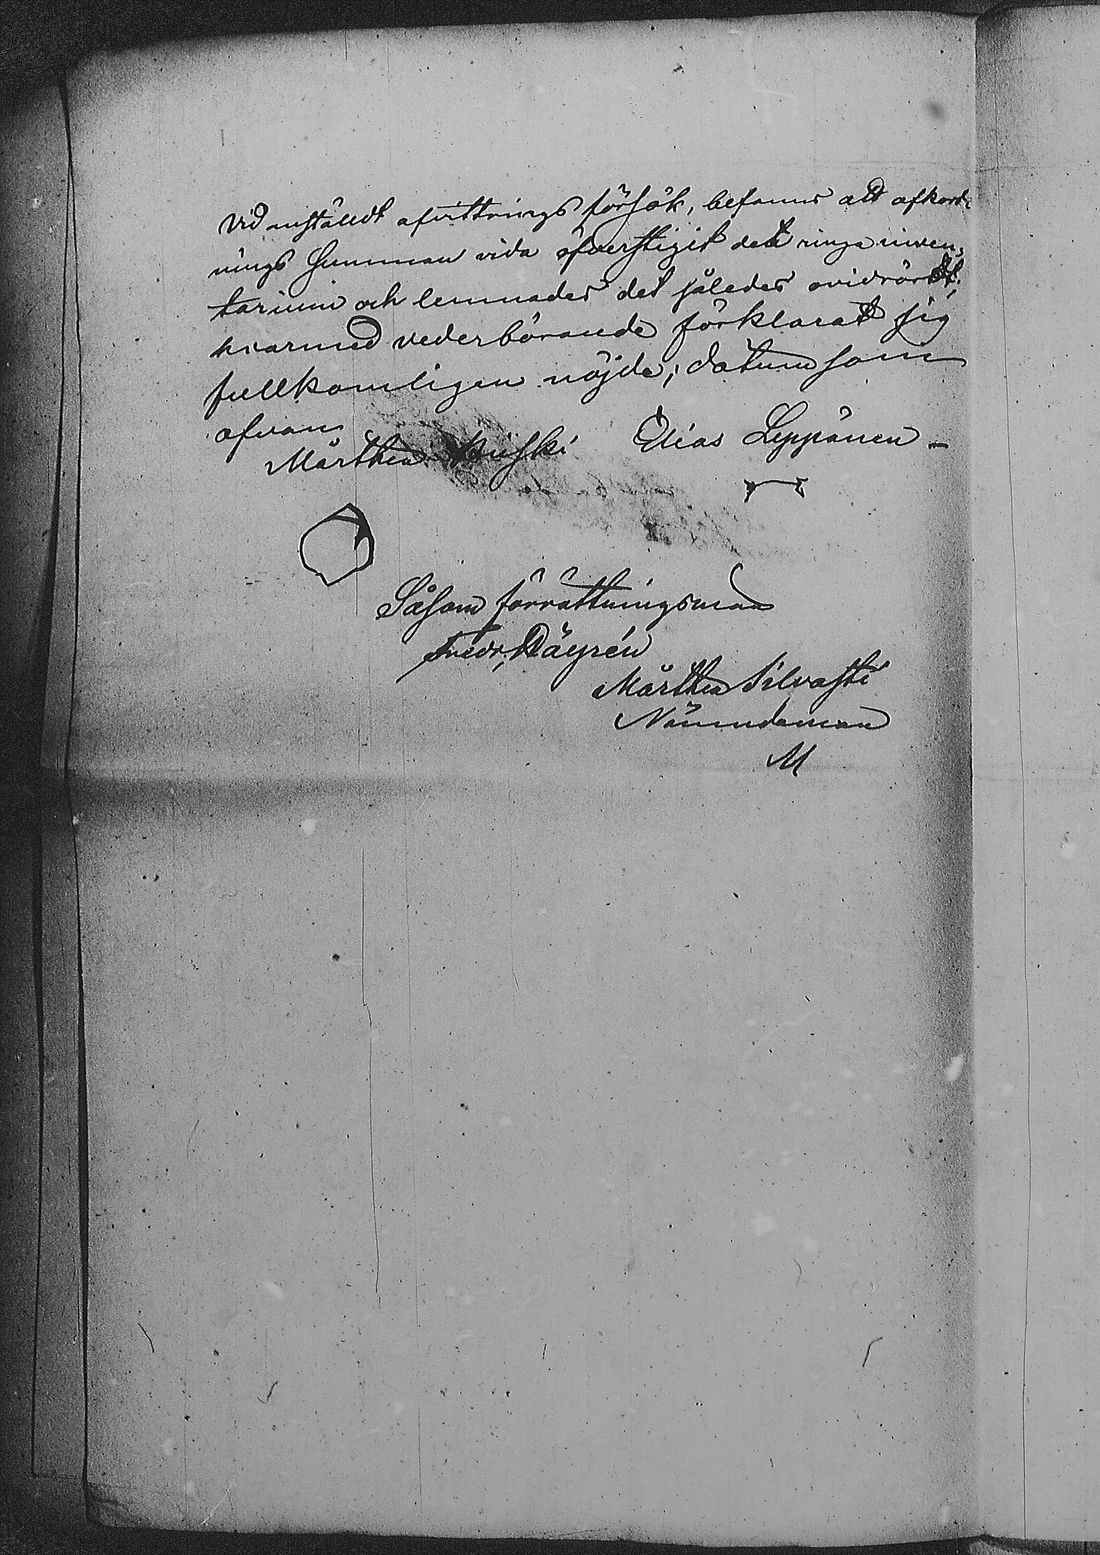 Vid anstäldt afvittrings försök, befanns att afkort-
nings summan vida öfverstigit det ringa inven-
tarium och lemnades det således ovidrördt,
hvarmed vederbörande förklarat sig
fullkomligen nöjde; datum som
ofvan
Mårthen Kiiski Elias Leppänen
Såsom förrättningsman
Fredr. Häyrén
Mårthen Silvasti
Nämndeman
M